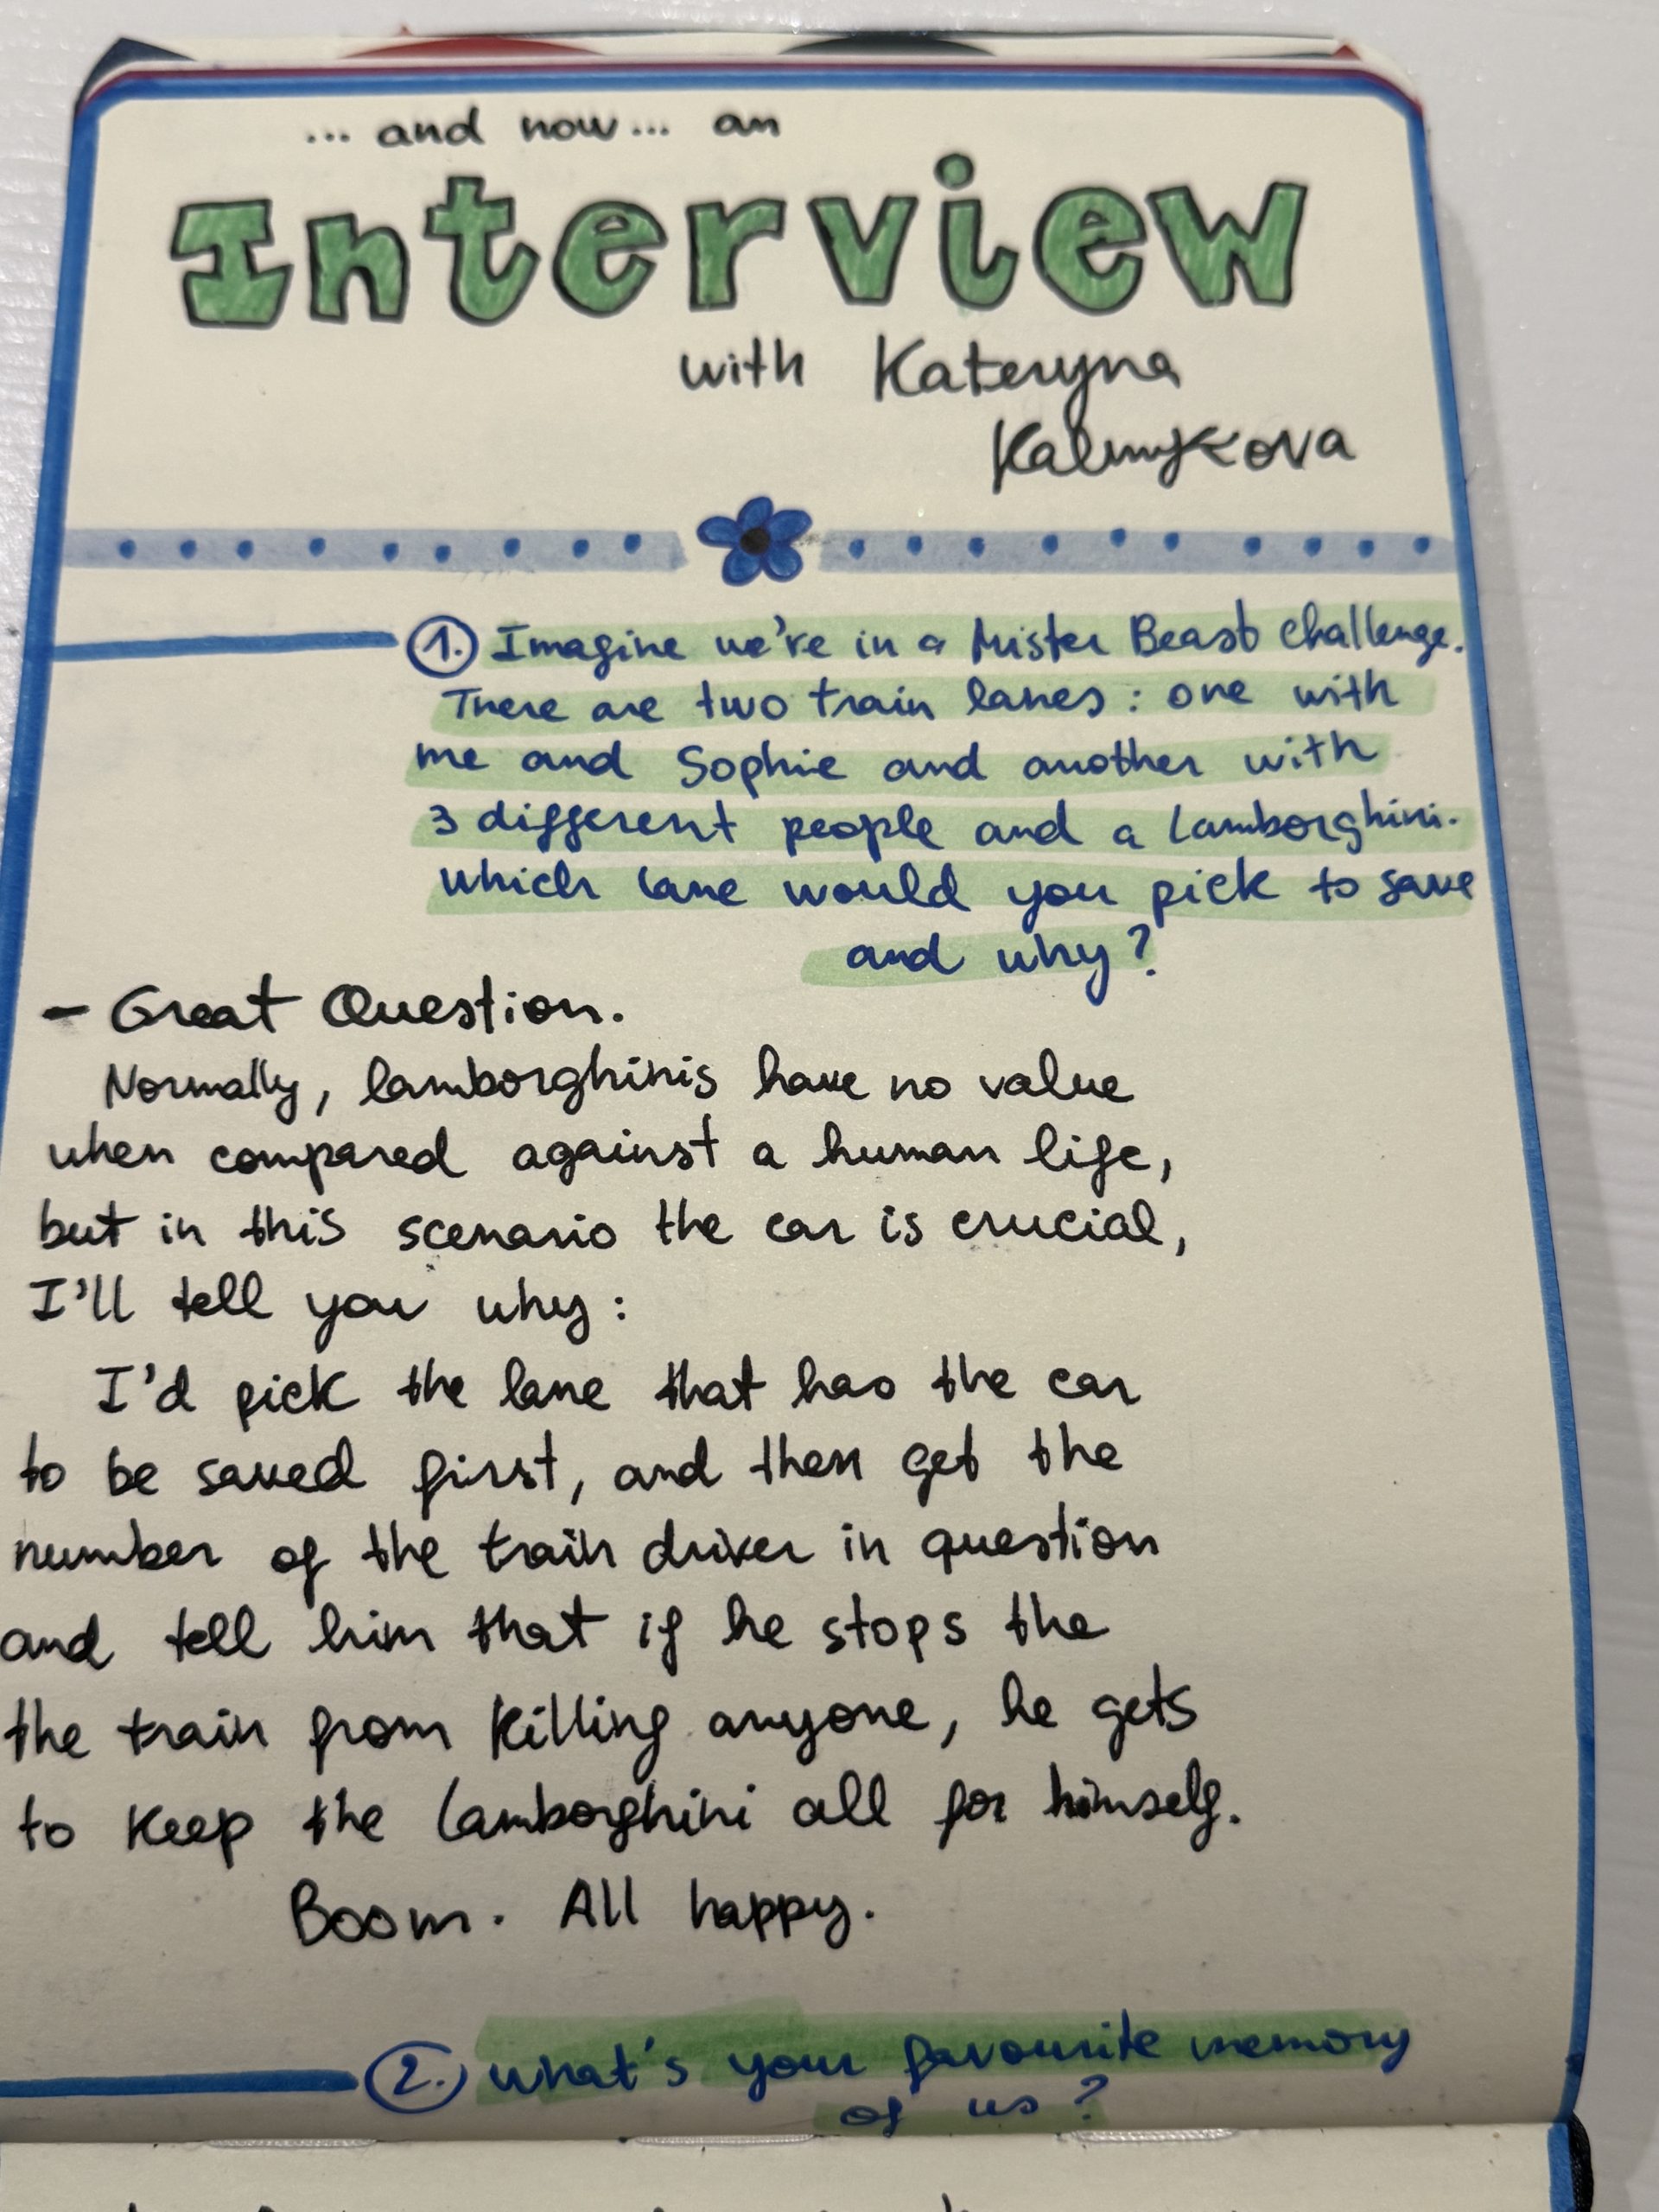 ... and now... an
Interview
with Kateryna
Kalmykova
1. Imagine we're in a Mister Beast challenge.
There are two train lanes: one with
me and Sophie and another with
3 different people and a Lamborghini.
which lane would you pick to save
and why?
- Great Question.
Normally, lamborghinis have no value
when compared against a human life,
but in this scenario the car is crucial,
I'll tell you why:
I'd pick the lane that has the car
to be saved first, and then get the
number of the train driver in question
and tell him that if he stops the
the train from killing anyone, he gets
to keep the Lamborghini all for himself.
Boom. All happy.
2. what's your favourite memory
of us?